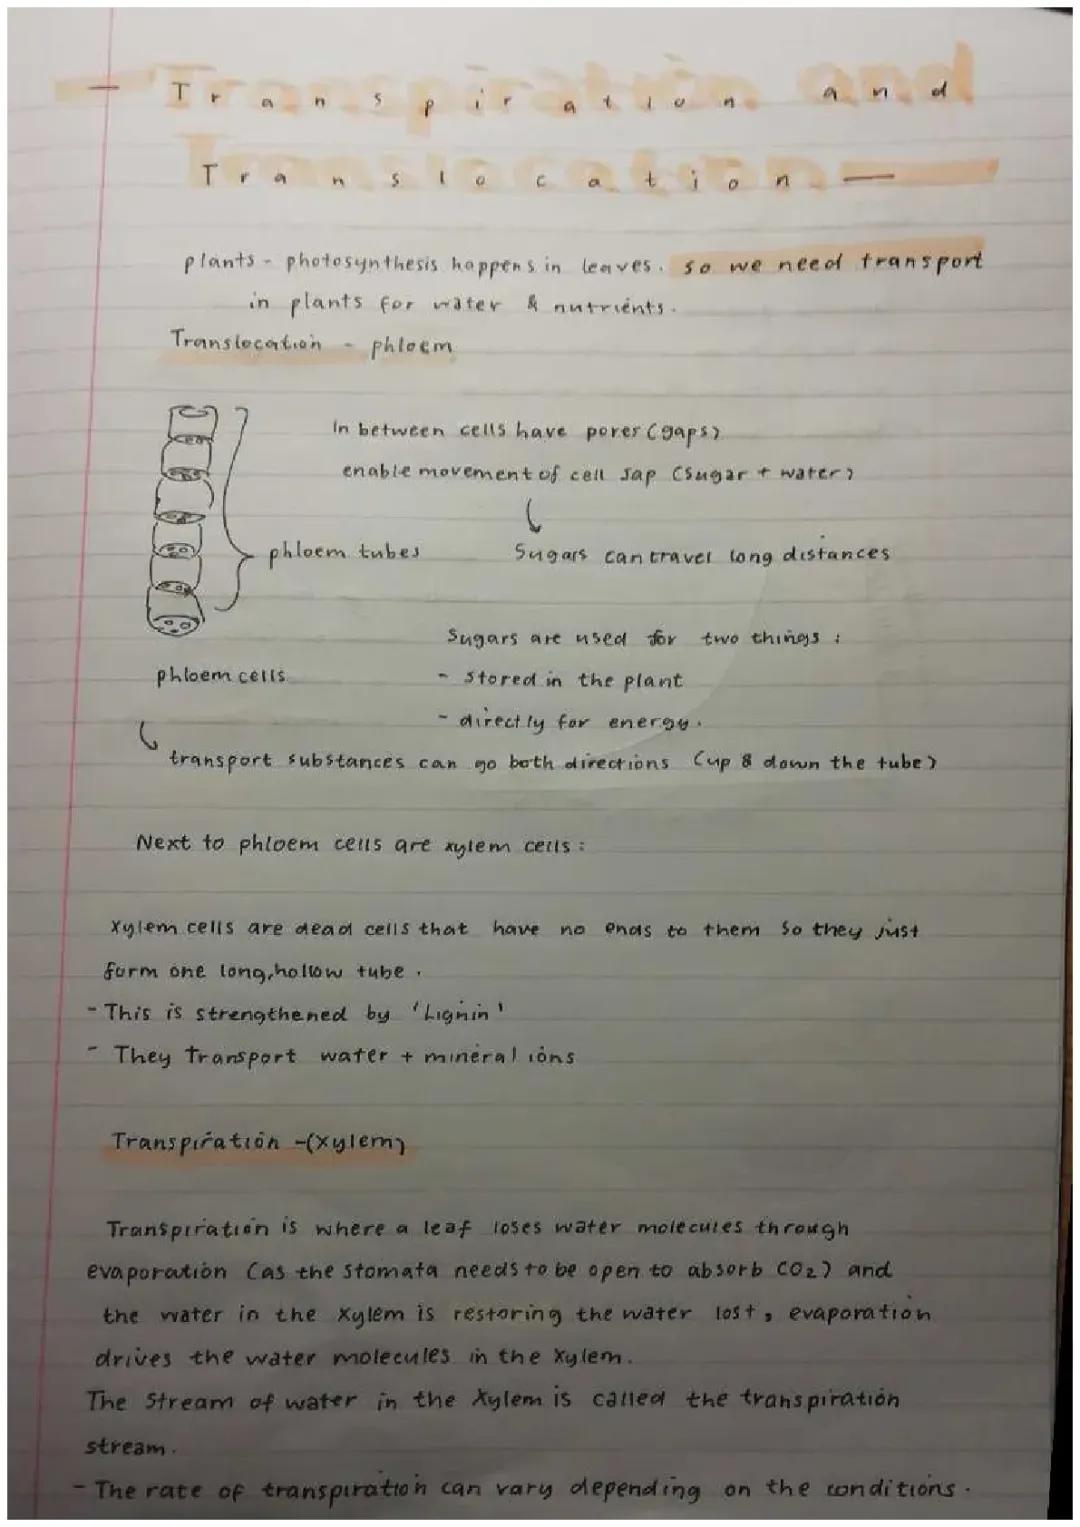 — Transpiration and
Translocation —
plants - photosynthesis happens in leaves. so we need transport
in plants for water & nutrients.
Translocation - phloem
In between cells have pores (gaps)
enable movement of cell sap (sugar + water)
phloem tubes
Sugars can travel long distances
Sugars are used for two things :
phloem cells
- stored in the plant
- directly for energy.
transport substances can go both directions (up & down the tube)
Next to phloem cells are xylem cells :
Xylem cells are dead cells that have no ends to them so they just
form one long, hollow tube .
- This is strengthened by 'Lignin'
- They transport water + mineral ions
Transpiration -(Xylem)
Transpiration is where a leaf loses water molecules through
evaporation (as the stomata needs to be open to absorb CO2) and
the water in the xylem is restoring the water lost, evaporation
drives the water molecules in the xylem.
The stream of water in the xylem is called the transpiration
stream.
- The rate of transpiration can vary depending on the conditions .